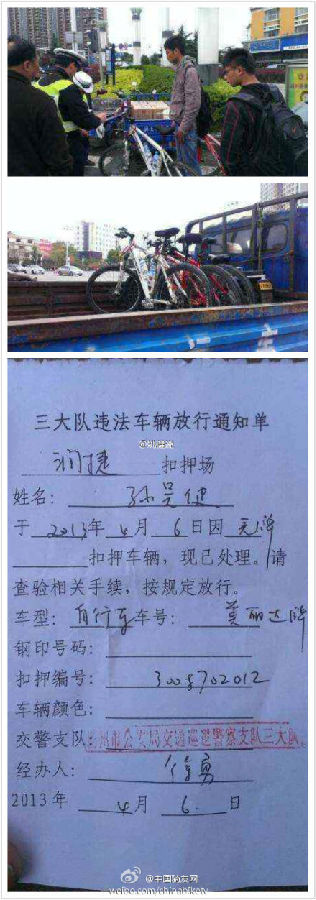 三大队违法车辆放行通知单
润捷 扣押场
姓名: 孙吴健
于 2013 年 4 月 6 日因 无牌
扣押车辆，现已处理。请
查验相关手续，按规定放行。
车型: 自行车 车号: 莫丽达牌
钢印号码:
扣押编号: 3005702012
车辆颜色:
交警支队 州市公安局交通巡逻警察支队三大队
经办人: 勇
2013 年 4 月 6 日
weibo.com/chinabiketv